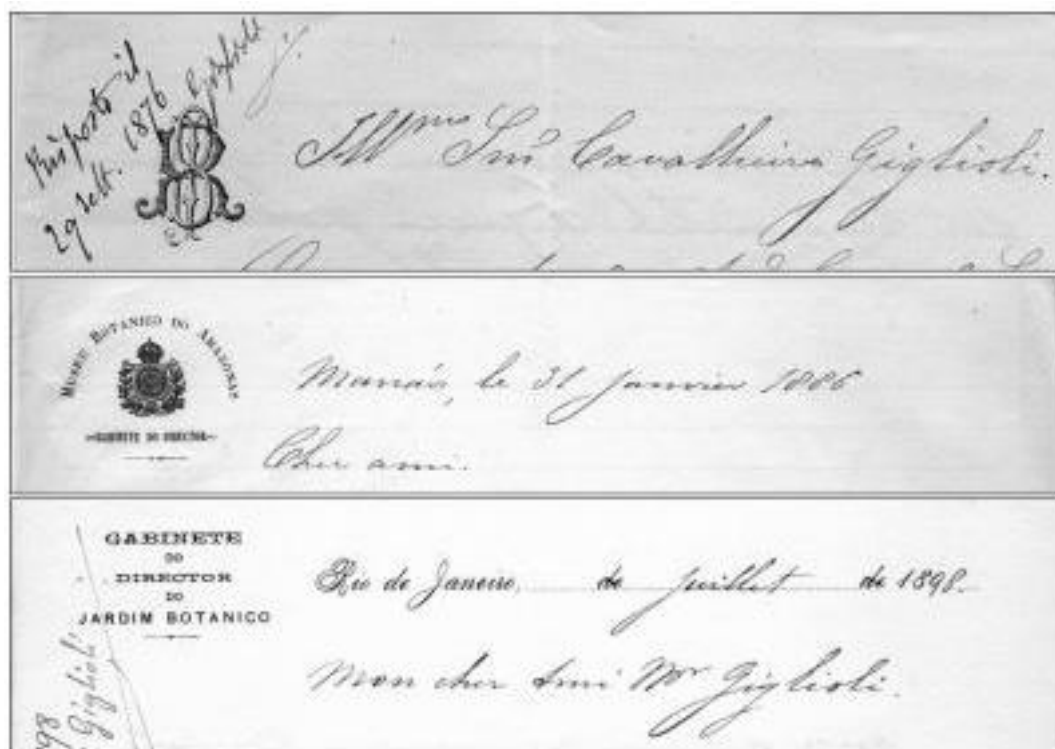 Risposto il
29 sett. 1876
Ill^mo Snr Cavalheiro Giglioli.
MUSEU BOTANICO DO AMAZONAS
GABINETE DO DIRECTOR
Manaós, le 31 janvier 1886
Cher ami.
GABINETE
DO
DIRECTOR
DO
JARDIM BOTANICO
Rio de Janeiro, de juillet de 1898.
Mon cher Ami Mr Giglioli.
98
Giglioli